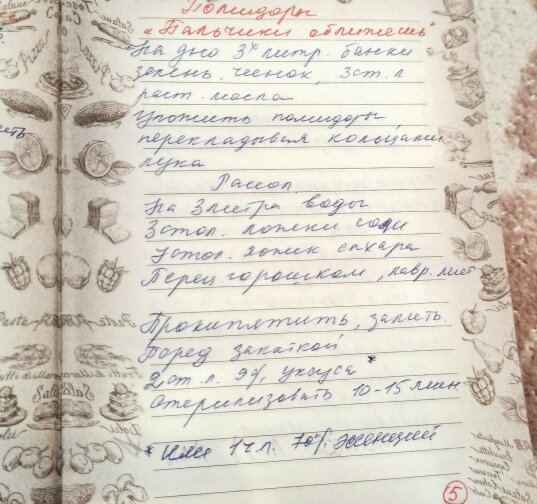 Помидоры
"Пальчики оближешь"
На дно 3х литр. банки
зелень, чеснок, 3 ст. л
раст. масла
Уложить помидоры,
перекладывая кольцами
лука
Рассол.
На 3 литра воды
3 стол. ложки соли
7 стол. ложек сахара
Перец горошком, лавр. лист
Прокипятить, залить.
Перед закаткой
2 ст. л. 9% уксуса *
Стерилизовать 10-15 мин
* Или 1 ч л. 70%
5